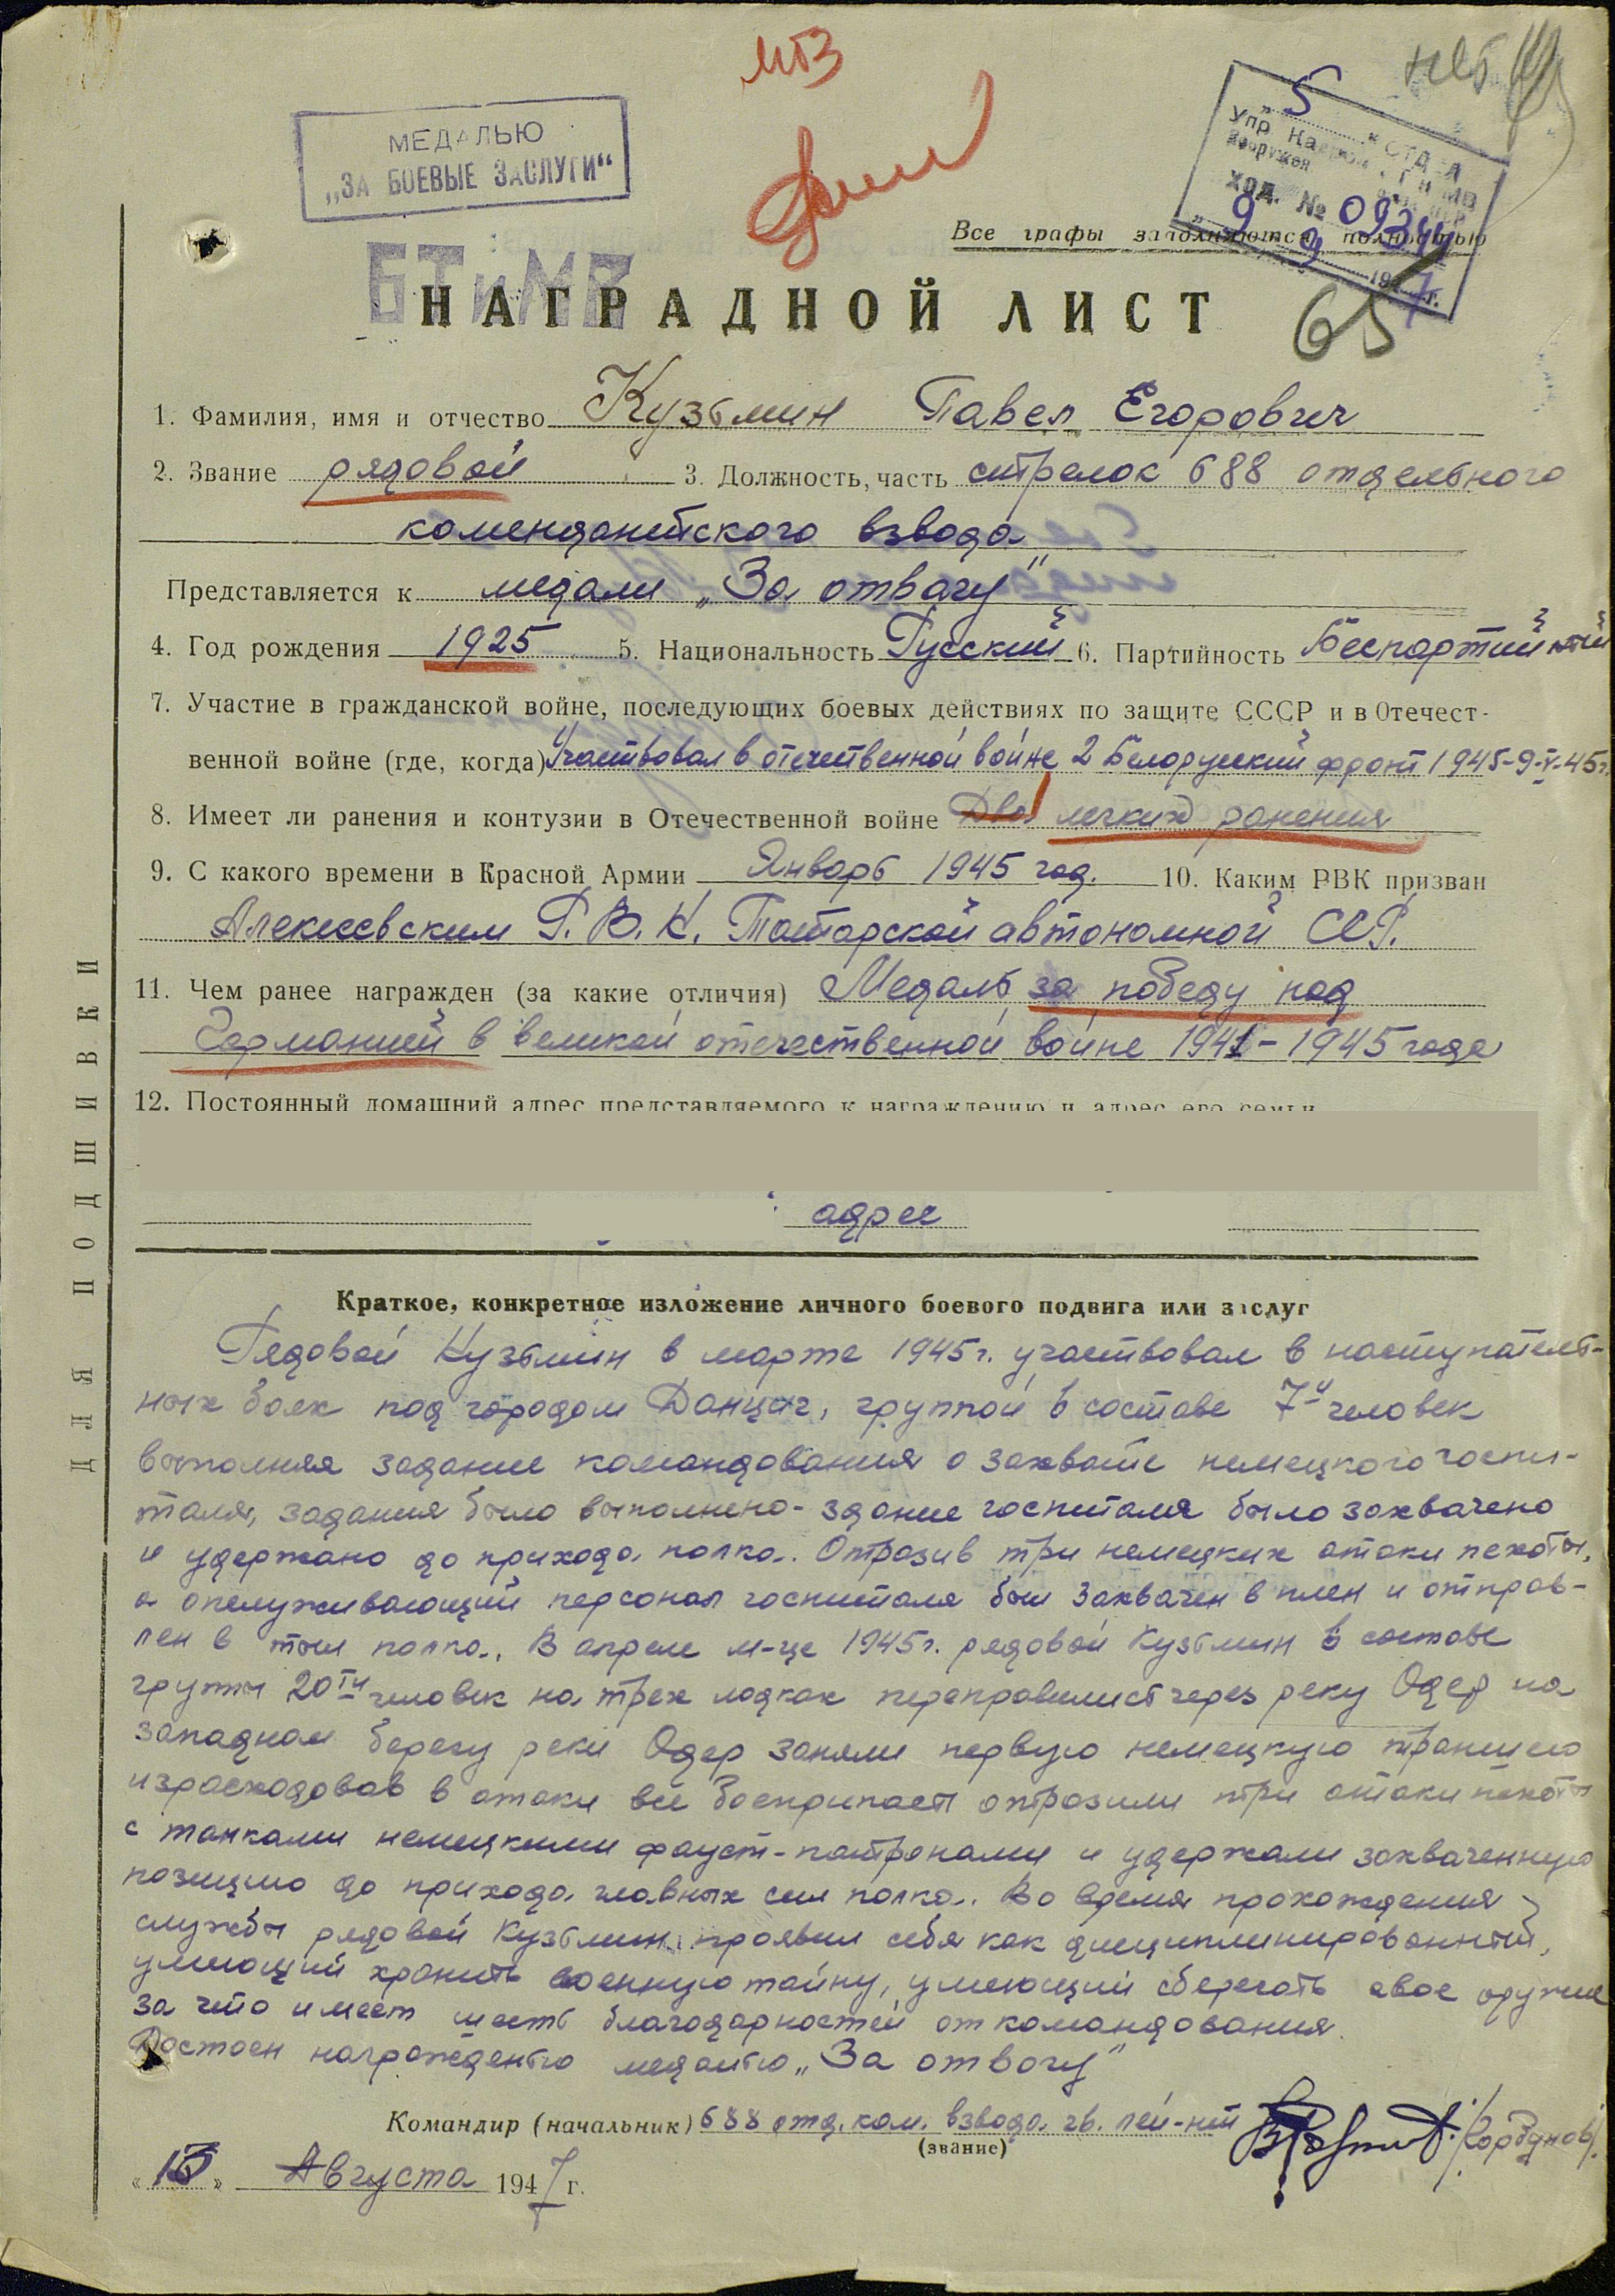 МТЗ
МЕДАЛЬЮ
„ЗА БОЕВЫЕ ЗАСЛУГИ“
„5 “ ОТДЕЛ
№ 0934
9 9 1947 г.
Все графы заполняются полностью
65
БТиМВ
НАГРАДНОЙ ЛИСТ
1. Фамилия, имя и отчество Кузьмин Павел Егорович
2. Звание рядовой 3. Должность, часть стрелок 688 отдельного
комендантского взвода
Представляется к медали „За отвагу"
4. Год рождения 1925 5. Национальность Русский 6. Партийность Беспартийный
7. Участие в гражданской войне, последующих боевых действиях по защите СССР и в Отечест-
венной войне (где, когда) Участвовал в отечественной войне 2 Белорусский фронт 1945-9-V-45г.
8. Имеет ли ранения и контузии в Отечественной войне Два легких ранения
9. С какого времени в Красной Армии Январь 1945 год. 10. Каким РВК призван
Алексеевским Р.В.К. Татарской автономной ССР.
11. Чем ранее награжден (за какие отличия) Медаль за победу над
Германией в великой отечественной войне 1941-1945 года
12. Постоянный домашний адрес представляемого к награждению и адрес его семьи
адрес
ДЛЯ ПОДШИВКИ
Краткое, конкретное изложение личного боевого подвига или заслуг
Рядовой Кузьмин в марте 1945г. участвовал в наступатель-
ных боях под городом Данциг, группой в составе 7и человек
выполняя задание командования о захвате немецкого госпи-
таля, задания было выполнено - здание госпиталя было захвачено
и удержано до прихода полка. Отразив три немецких атаки пехоты,
а опслуживающий персонал госпиталя был захвачен в плен и отправ-
лен в тыл полка. В апреле м-це 1945г. рядовой Кузьмин в составе
групы 20ти человек на трех лодках переправились через реку Одер на
западном берегу реки Одер заняли первую немецкую траншею
израсходовав в атаки все боеприпасы отразили три атаки пехоты
с танками немецкими фауст-патронами и удержали захваченную
позицию до прихода главных сил полка. Во время прохождения
службы рядовой Кузьмин проявил себя как дисциплинированный,
умеющий хранить военную тайну, умеющий сберегать свое оружие
за что имеет шесть благодарностей от командования.
Достоен награждению медалью „За отвагу"
Командир (начальник) 688 отд. ком. взвода гв. лей-нт /Корбунов/
(звание)
Августа 1947 г.